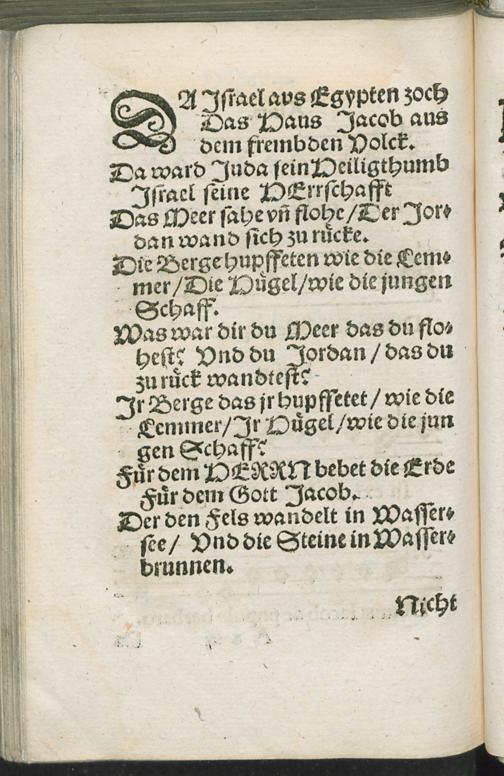 DA Jſrael avs Egypten zoch
Das Haus Jacob aus
dem frembden Volck.
Da ward Juda ſein Heiligthumb
Jſrael ſeine HErrſchafft
Das Meer ſahe vñ flohe / Der Jor⸗
dan wand ſich zu rücke.
Die Berge hupffeten wie die Lem⸗
mer / Die Hügel / wie die jungen
Schaff.
Was war dir du Meer das du flo⸗
heſt? Vnd du Jordan / das du
zu rück wandteſt?
Jr Berge das jr hupffetet / wie die
Lemmer / Jr Hügel / wie die jun
gen Schaff?
Für dem HERRN bebet die Erde
Für dem Gott Jacob.
Der den Fels wandelt in Waſſer⸗
ſee / Vnd die Steine in Waſſer⸗
brunnen.
Nicht